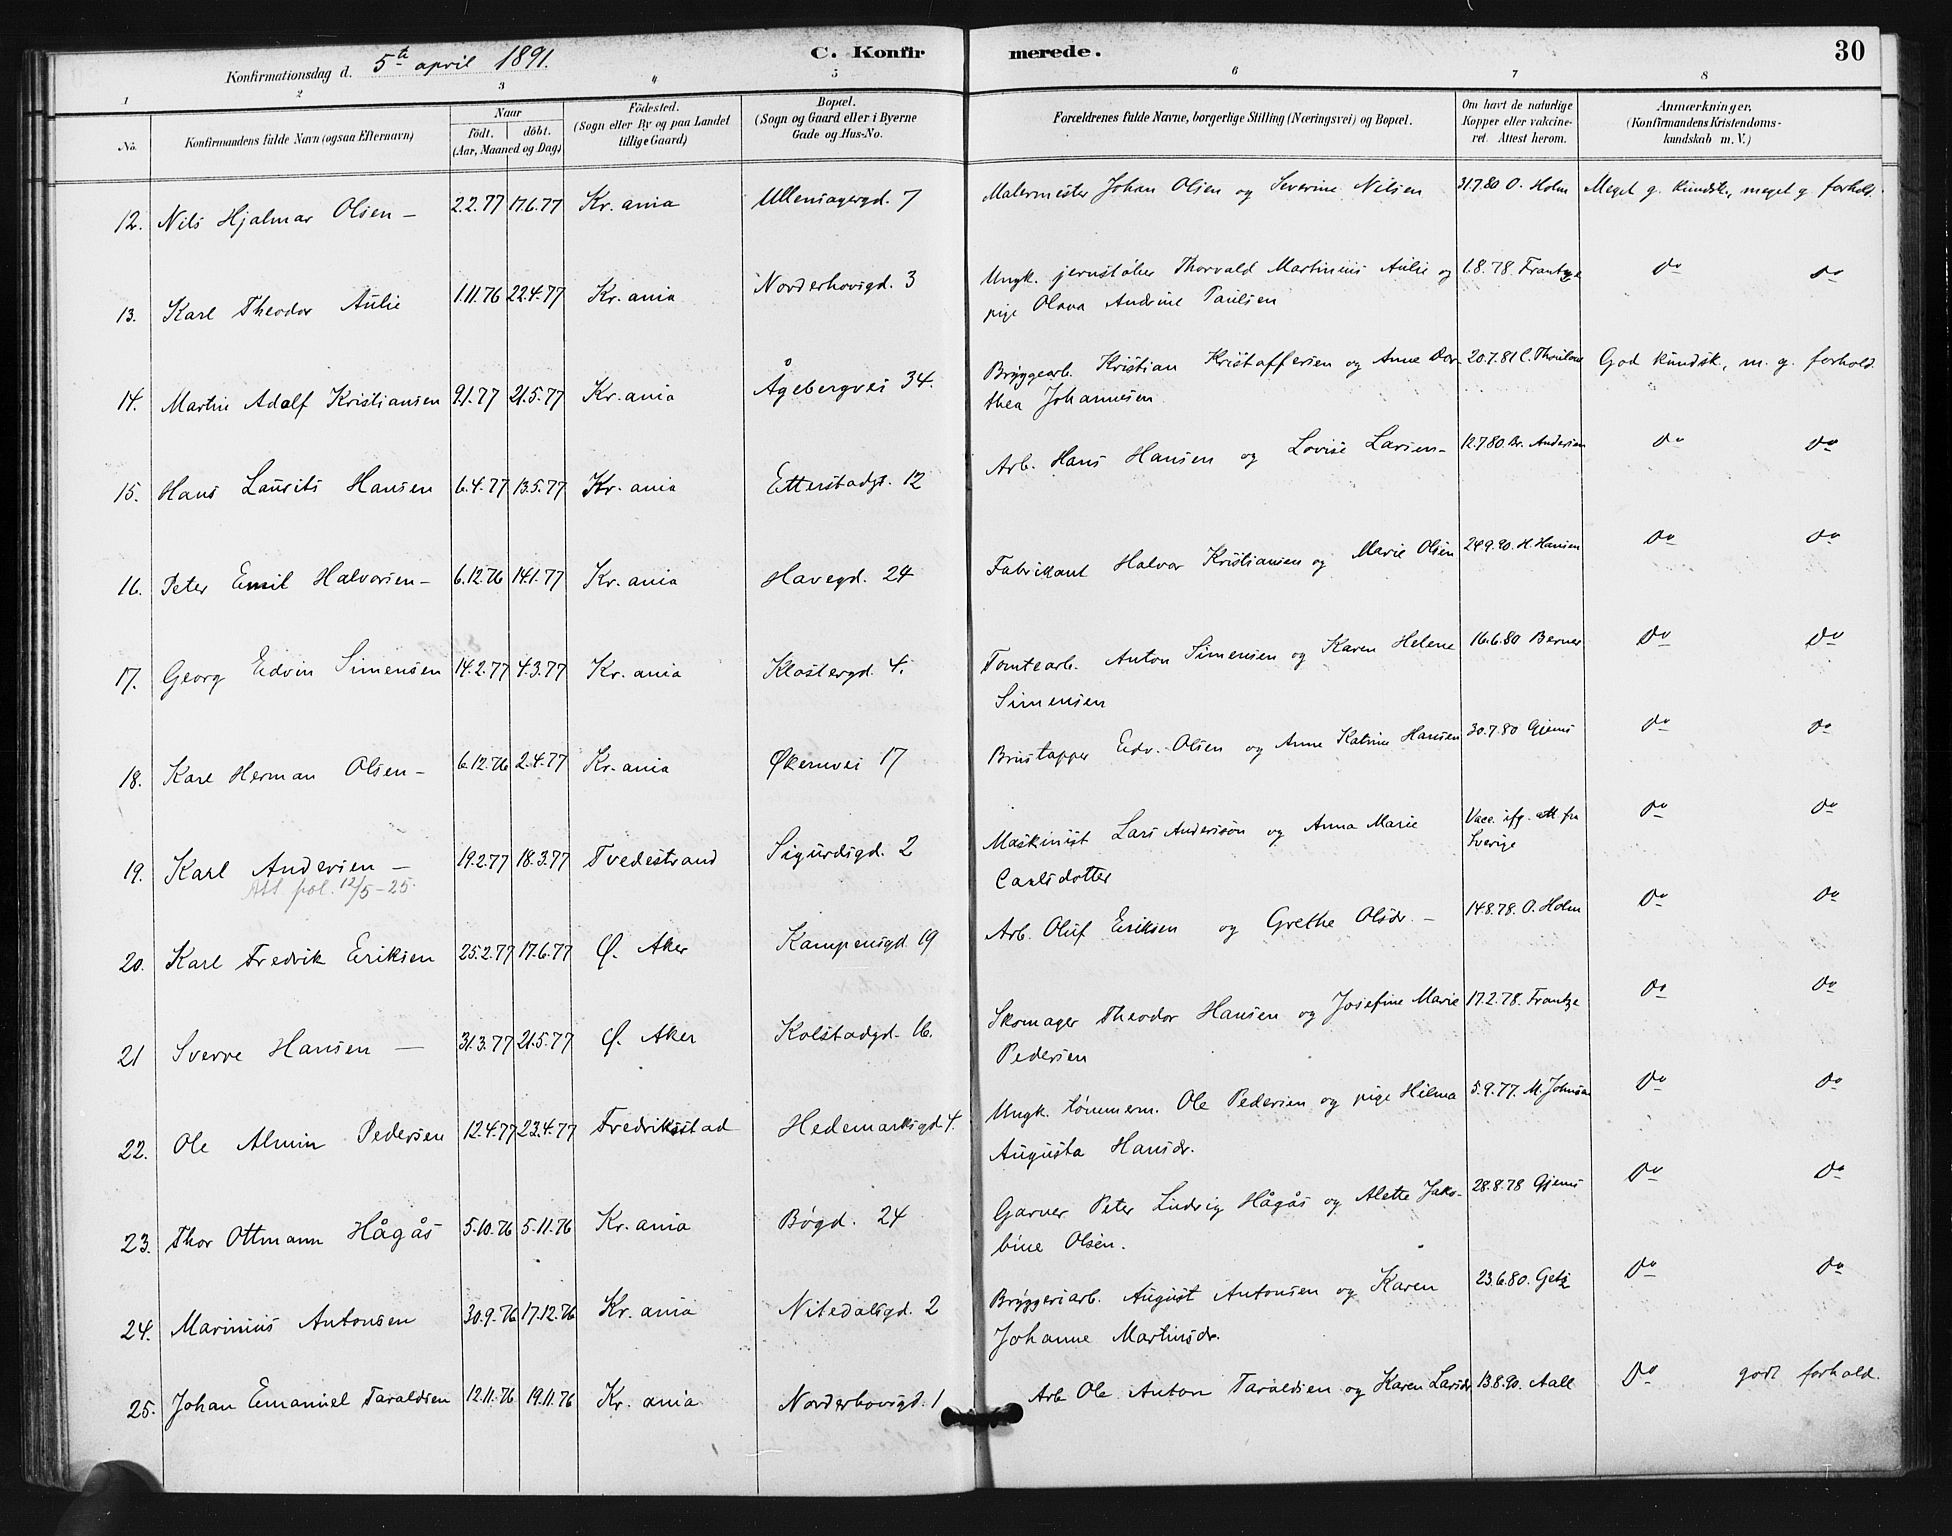 Konfirmationsdag d. 5te april 1891.
C. Konfirmerede.
30
1 2 3 4 5 6 7 8
No.
Konfirmandens fulde Navn (ogsaa Efternavn)
Naar
födt. döbt.
(Aar, Maaned og Dag)
Födested.
(Sogn eller By og paa Landet
tillige Gaard)
Bopæl.
(Sogn og Gaard eller i Byerne
Gade og Hus-No.
Forældrenes fulde Navne, borgerlige Stilling (Næringsvei) og Bopæl.
Om havt de naturlige
Kopper eller vakcine-
ret. Attest herom.
Anmærkninger.
(Konfirmandens Kristendoms-
kundskab m. V.)
12. Nils Hjalmar Olsen – 2.2.77 17.6.77 Kr.ania Ullensagergd. 7 Malermester Johan Olsen og Severine Nilsen 31.7.80 O. Holm Meget g. kundsk., meget g. forhold.
13. Karl Theodor Aulie 1.11.76 22.4.77 Kr.ania Norderhovsgd. 3 Ungk. jernstøber Thorvald Martinius Aulie og 1.8.78. Frantze do do
pige Olava Andrine Paulsen
14. Martin Adolf Kristiansen 9.1.77 21.5.77 Kr.ania Ågebergvei 34. Bryggearb. Kristian Kristaffersen og Anne Dor- 20.7.81 C. God kundsk., m. g. forhold.
thea Johannesen
15. Hans Laurits Hansen 6.4.77 13.5.77 Kr.ania Etterstadgt. 12 Arb. Hans Hansen og Lovise Larsen – 12.7.80. Br. Andersen do do
16. Peter Emil Halvorsen – 6.12.76 14.1.77 Kr.ania Havegd. 24 Fabrikant Halvor Kristiansen og Marie Olsen 24.9.90. H. Hansen do do
17. Georg Edvin Simensen 14.2.77 4.3.77 Kr.ania Klostergd. 4. Tomtearb. Anton Simensen og Karen Helene 16.6.80 Berner do do
Simensen
18. Karl Herman Olsen – 6.12.76 2.4.77 Kr.ania Økernvei 17 Brustapper Edv. Olsen og Anne Katrine Hansen 30.7.80 Gjems do do
19. Karl Andersen – 19.2.77 18.3.77 Tvedestrand Sigurdsgd. 2 Maskinist Lars Andersson og Anna Marie Vacc. ifg. att. fra do do
Att. pol. 12/5-25. Carlsdotter Sverige
20. Karl Fredrik Eriksen 25.2.77 17.6.77 Ø. Aker Kampensgd. 19 Arb. Oluf Eriksen og Grethe Olsdr. – 14.8.78. O. Holm do do
21 Sverre Hansen – 31.3.77 21.5.77 Ø. Aker Kolstadgd. 16. Skomager Theodor Hansen og Josefine Marie 17.2.78. Frantze do do
Pedersen
22. Ole Almin Pedersen 12.4.77 23.4.77 Fredriksstad Hedemarksgd. 4. Ungk. tömmerm. Ole Pedersen og pige Hilma 5.9.77. M. Johnsen do do
Augusta Hansdr.
23. Thor Ottmann Hågås 5.10.76 5.11.76 Kr.ania Bøgd. 24 Garver Peter Ludvig Hågås og Alette Jako- 28.8.78 Gjems do do
bine Olsen.
24. Marinius Antonsen 30.9.76 17.12.76 Kr.ania Nitedalsgd. 2 Bryggeriarb. August Antonsen og Karen 23.6.80. Getz do do
Johanne Martinsdr.
25. Johan Emanuel Taraldsen 12.11.76 19.11.76 Kr.ania Norderhovsgd. 1 Arb. Ole Anton Taraldsen og Karen Larsdr. 13.8.90. Aall do godt forhold.